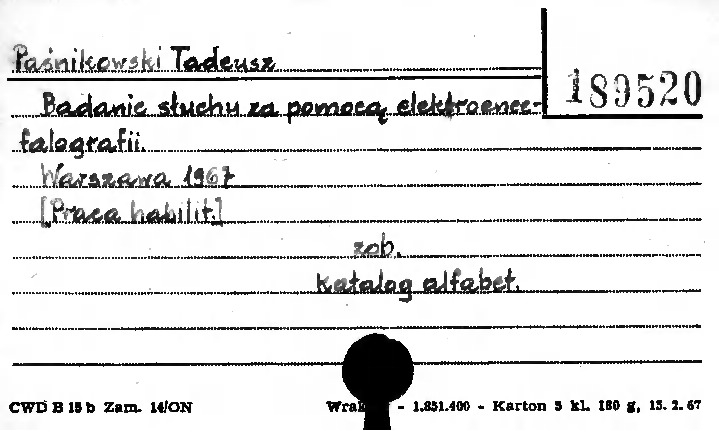 Paśnikowski Tadeusz
189520
Badanie słuchu za pomocą elektroence-
falografii.
Warszawa 1967
[Praca habilit.]
zob.
katalog alfabet.
CWD B 15 b Zam. 14/ON
- 1.851.400 - Karton 5 kl. 180 g, 15. 2. 67